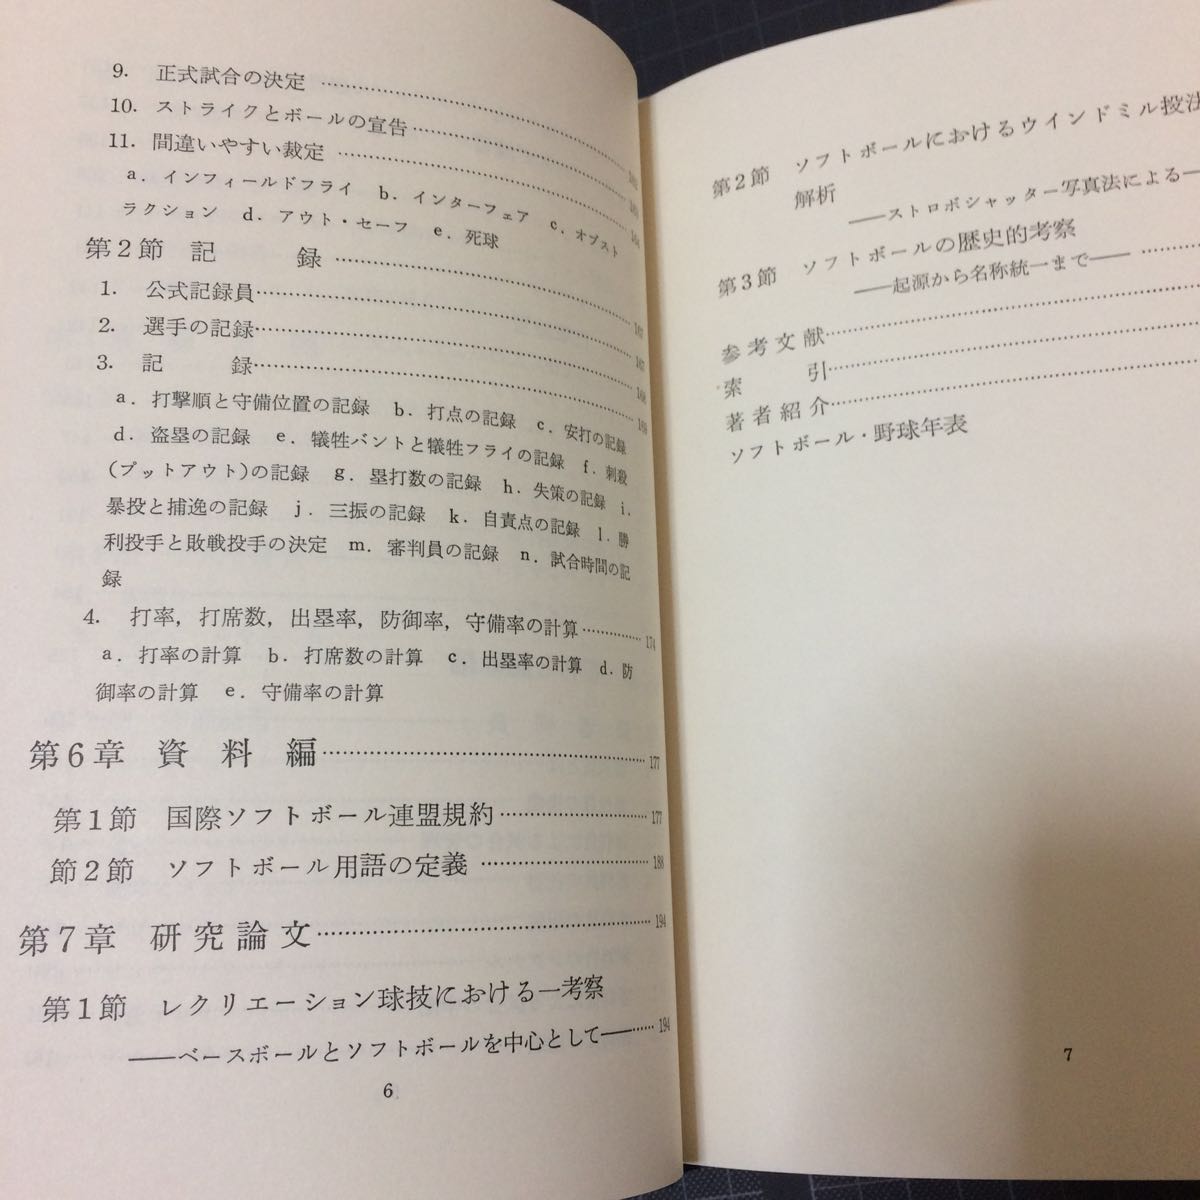 9. 正式試合の決定
10. ストライクとボールの宣告
11. 間違いやすい裁定
a. インフィールドフライ b. インターフェア c. オブスト
ラクション d. アウト・セーフ e. 死球
第2節 記 録
1. 公式記録員 167
2. 選手の記録 167
3. 記 録 168
a. 打撃順と守備位置の記録 b. 打点の記録 c. 安打の記録
d. 盗塁の記録 e. 犠牲バントと犠牲フライの記録 f. 刺殺
(プットアウト)の記録 g. 塁打数の記録 h. 失策の記録 i.
暴投と捕逸の記録 j. 三振の記録 k. 自責点の記録 l. 勝
利投手と敗戦投手の決定 m. 審判員の記録 n. 試合時間の記
録
4. 打率，打席数，出塁率，防御率，守備率の計算 174
a. 打率の計算 b. 打席数の計算 c. 出塁率の計算 d. 防
御率の計算 e. 守備率の計算
第6章 資料編 177
第1節 国際ソフトボール連盟規約 177
節2節 ソフトボール用語の定義 188
第7章 研究論文 194
第1節 レクリエーション球技における一考察
――ベースボールとソフトボールを中心として―― 194
6
第2節 ソフトボールにおけるウインドミル投法
解析
――ストロボシャッター写真法による―
第3節 ソフトボールの歴史的考察
――起源から名称統一まで――
参考文献
索 引
著者紹介
ソフトボール・野球年表
7